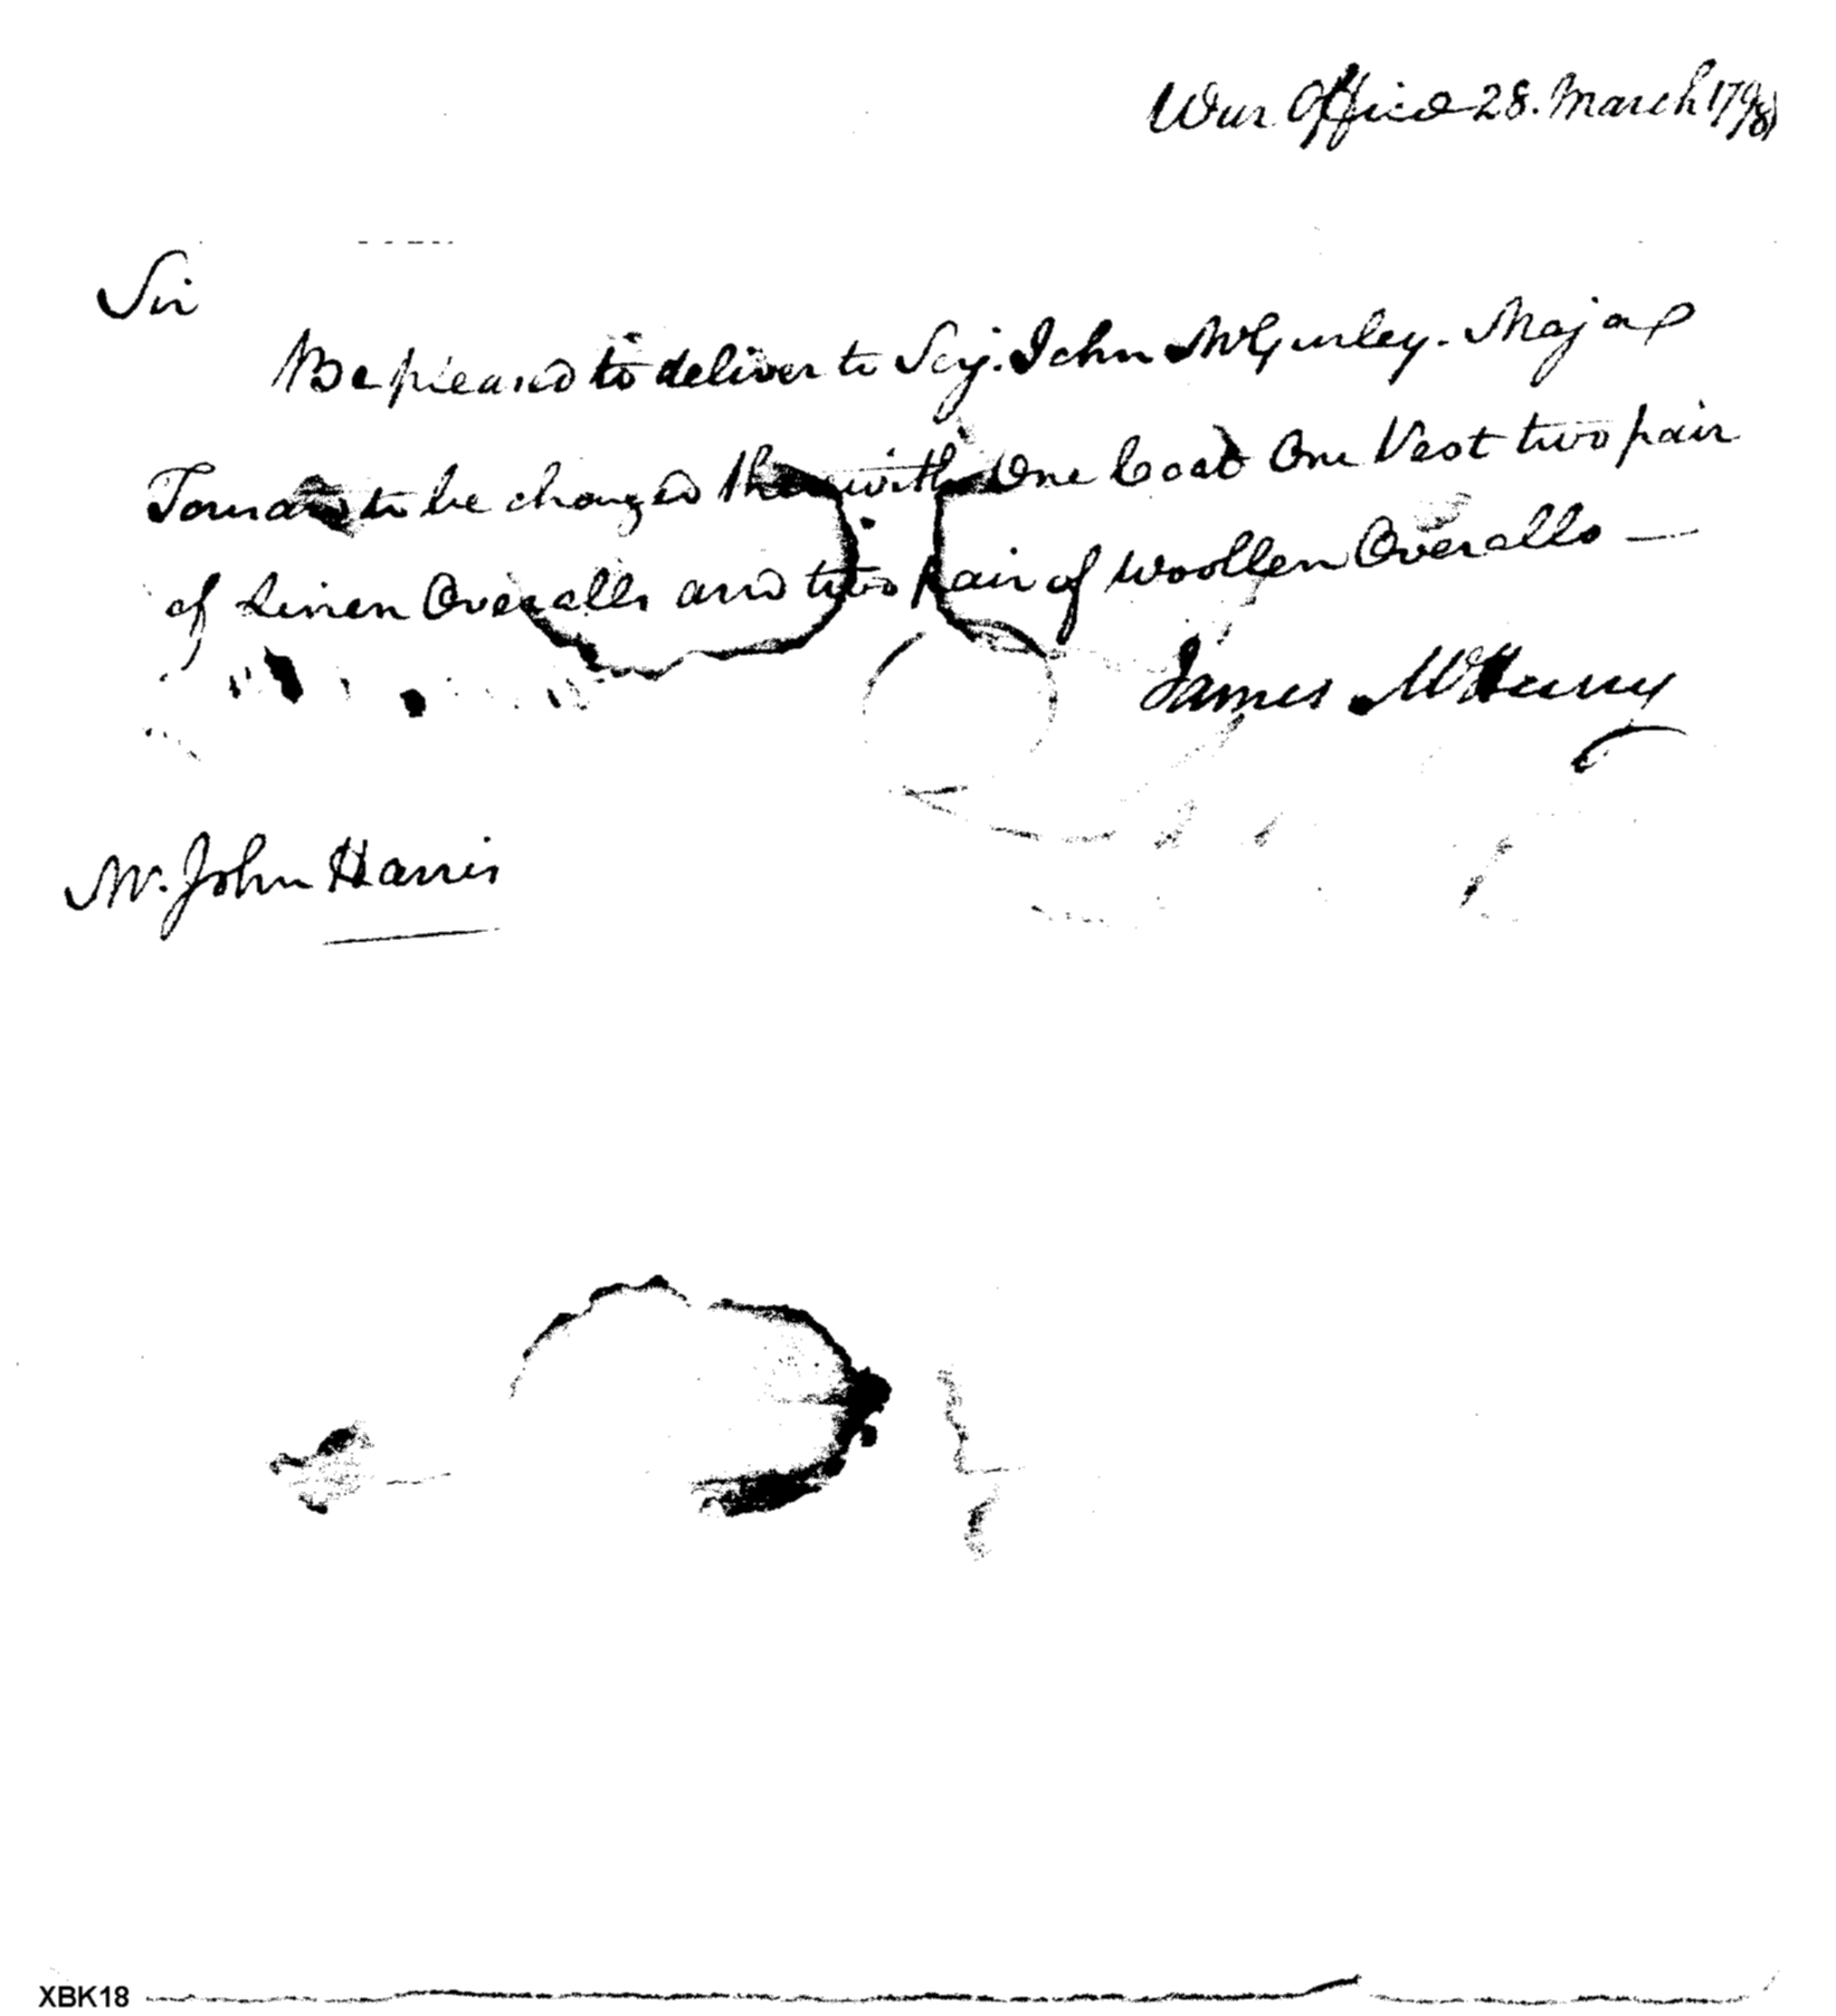 War Office 28. March 1798
Sir
Be pleased to deliver to Serj. John McGurley. Major
Tousard to be charged therewith One Coat One Vest two pair
of linen Overalls and two pair of woollen Overalls —
James McHenry
Mr. John Harris
XBK18